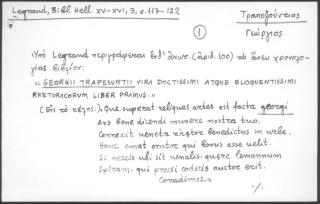 Legrand, Bibl Hell. XV-XVI, 3, σ. 117-122
Τραπεζούντιος
Γεώργιος
①
Ὑπὸ Legrand περιγράφεται ἐνθ' ἀνωτ. (ἀριθ. 100) τὸ ἄνευ χρονολο-
γίας βιβλίον:
"GEORGII TRAPESUNTII VIRI DOCTISSIMI ATQUE ELOQUENTISSIMI
RHETORICORUM LIBER PRIMUS."
(Εἰς τὸ τέλος:) Que superat reliquas artes est facta georgi
Ars bene dicendi munere nostra tuo.
Correxit veneta rhetor benedictus in urbe.
Hanc emat orator qui bonus esse velit.
Si nescis ubi sit venalis: quere lemannum
Spiram: qui precii codicis auctor erit.
Coradinus."
·/.